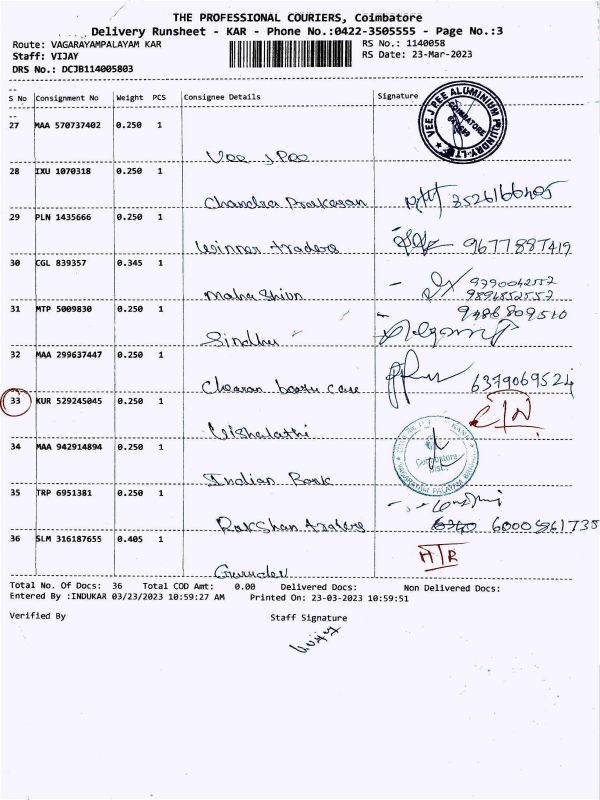 THE PROFESSIONAL COURIERS, Coimbatore
Delivery Runsheet - KAR - Phone No.:0422-3505555 - Page No.:3
Route: VAGARAYAMPALAYAM KAR RS No.: 1140058
Staff: VIJAY RS Date: 23-Mar-2023
DRS No.: DCJB114005803
S No Consignment No Weight PCS Consignee Details Signature
VEE J PEE ALUMINIUM FOUNDRY-LTD COIMBATORE
27 MAA 570737402 0.250 1
Vee J Pee
28 IXU 1070318 0.250 1
Chandra Prakasan 3526166405
29 PLN 1435666 0.250 1
Winner traders 9677887419
30 CGL 839357 0.345 1
9790042552
Maha Shivn 9894852557
31 MTP 5009830 0.250 1 9486809510
Sindhu
32 MAA 299637447 0.250 1
Chearan baatu case 6379069524
33 KUR 529245045 0.250 1
Vishalathi
34 MAA 942914894 0.250 1 Coimbatore Dist.
Indian Bank
35 TRP 6951381 0.250 1
Rakshan traders 6000561735
36 SLM 316187655 0.405 1
Gurudev
Total No. Of Docs: 36 Total COD Amt: 0.00 Delivered Docs: Non Delivered Docs:
Entered By :INDUKAR 03/23/2023 10:59:27 AM Printed On: 23-03-2023 10:59:51
Verified By Staff Signature
Vijay